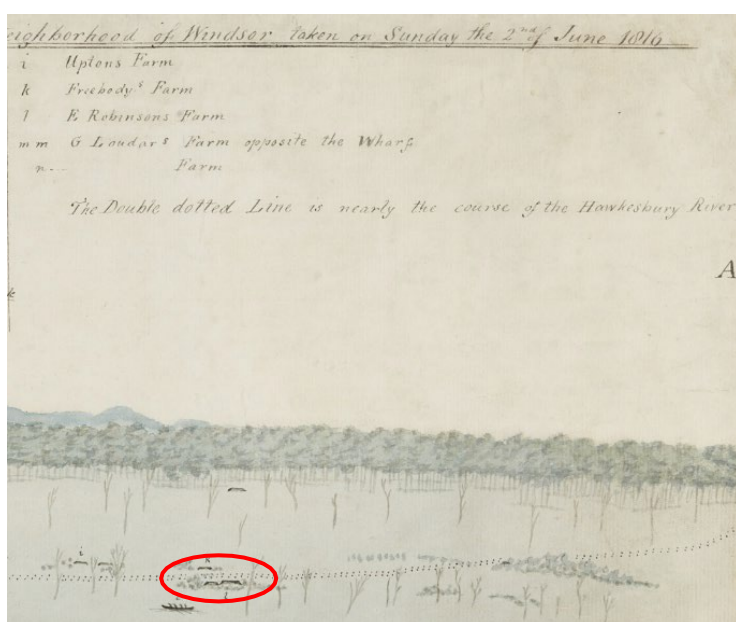 eighborhood of Windsor taken on Sunday the 2nd of June 1816
i Uptons Farm
k Freebody's Farm
l E Robinsons Farm
m m G Loudars Farm opposite the Wharf
n... Farm
The Double dotted Line is nearly the course of the Hawkesbury River
A
k
i
k
l